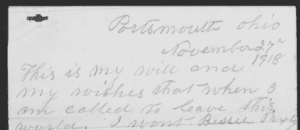 Portsmouth Ohio
November 27
1918
This is my will and
my wishes that when I
am called to leave this
world. I want Bessie